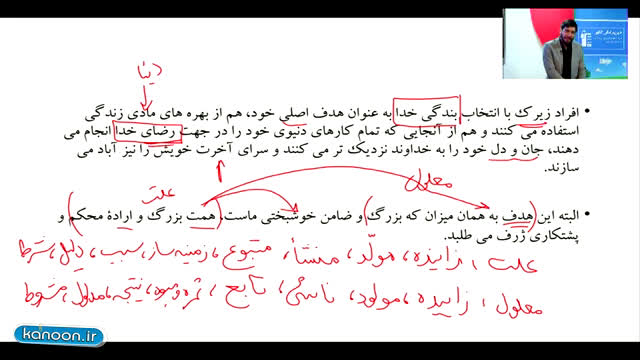 دنیا
افراد زیرک با انتخاب بندگی خدا به عنوان هدف اصلی خود، هم از بهره های مادی زندگی
استفاده می کنند و هم از آنجایی که تمام کارهای دنیوی خود را در جهت رضای خدا انجام می
دهند، جان و دل خود را به خداوند نزدیک تر می کنند و سرای آخرت خویش را نیز آباد می
سازند.
علت
معلول
البته این هدف به همان میزان که بزرگ و ضامن خوشبختی ماست، همت بزرگ و ارادهٔ محکم و
پشتکاری ژرف می طلبد.
علت، زاینده، مولّد، منشأ، متبوع، زمینه ساز، سبب، دلیل، شرط
معلول، زاییده، مولود، ناشی، تابع، ثمره و میوه، نتیجه، مدلول، مشروط
kanoon.ir